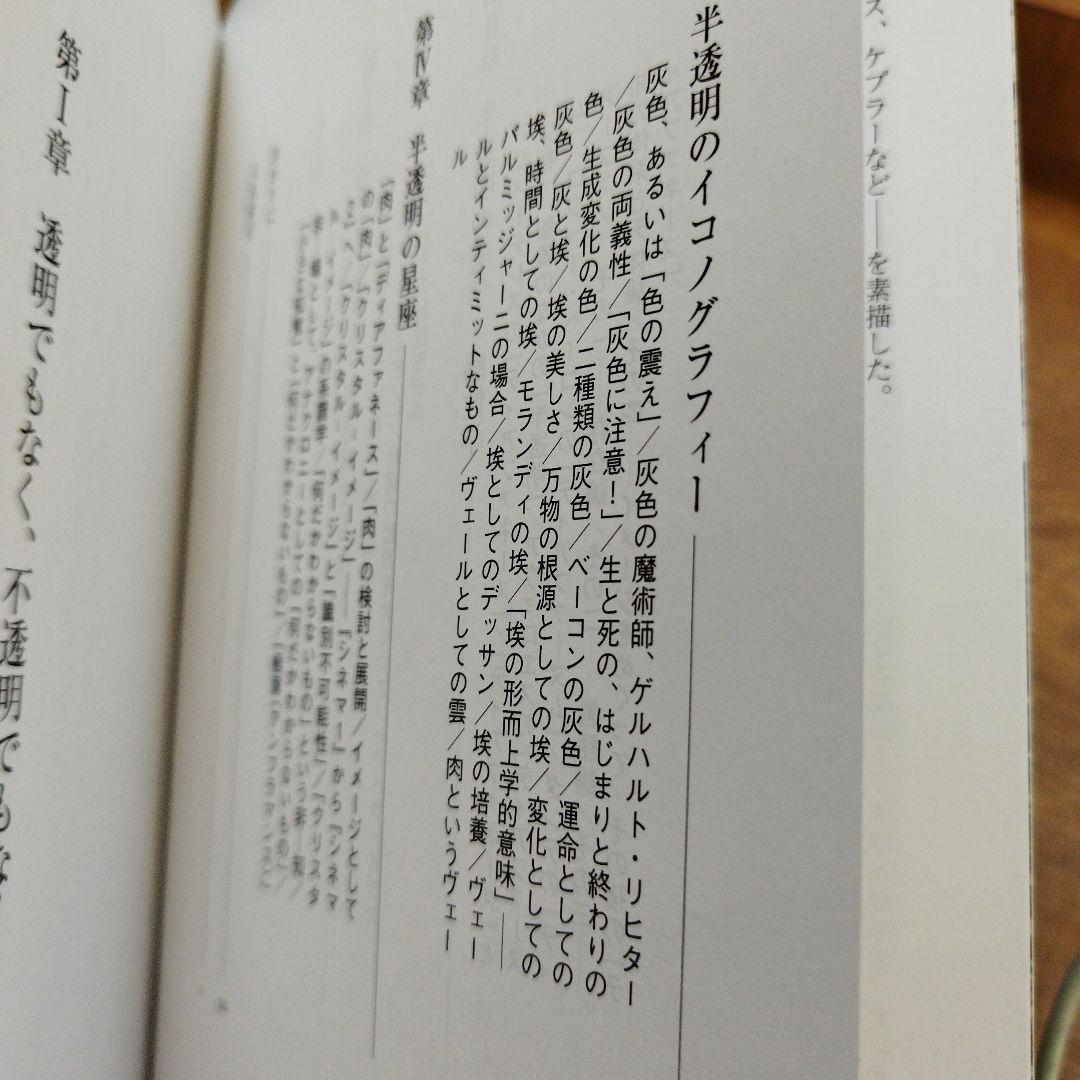 ス、ケプラーなど――を素描した。
半透明のイコノグラフィー
灰色、あるいは「色の震え」／灰色の魔術師、ゲルハルト・リヒター
／灰色の両義性／「灰色に注意！」／生と死の、はじまりと終わりの
色／生成変化の色／二種類の灰色／ベーコンの灰色／運命としての
灰色／灰と埃／埃の美しさ／万物の根源としての埃／変化としての
埃、時間としての埃／モランディの埃／「埃の形而上学的意味」――
パルミッジャーニの場合／埃としてのデッサン／埃の培養／ヴェー
ルとインティミットなもの／ヴェールとしての雲／肉というヴェー
ル
第Ⅳ章 半透明の星座
「肉」と「ディアファネース」／「肉」の検討と展開／イメージとして
の「肉」／「クリスタル－イメージ」――『シネマ1』から『シネマ
2』へ／「クリスタル－イメージ」と「識別不可能性」／「クリスタ
ル－イメージ」の系譜学／「何だかわからないもの」という
第Ⅰ章 透明でもなく、不透明でもな